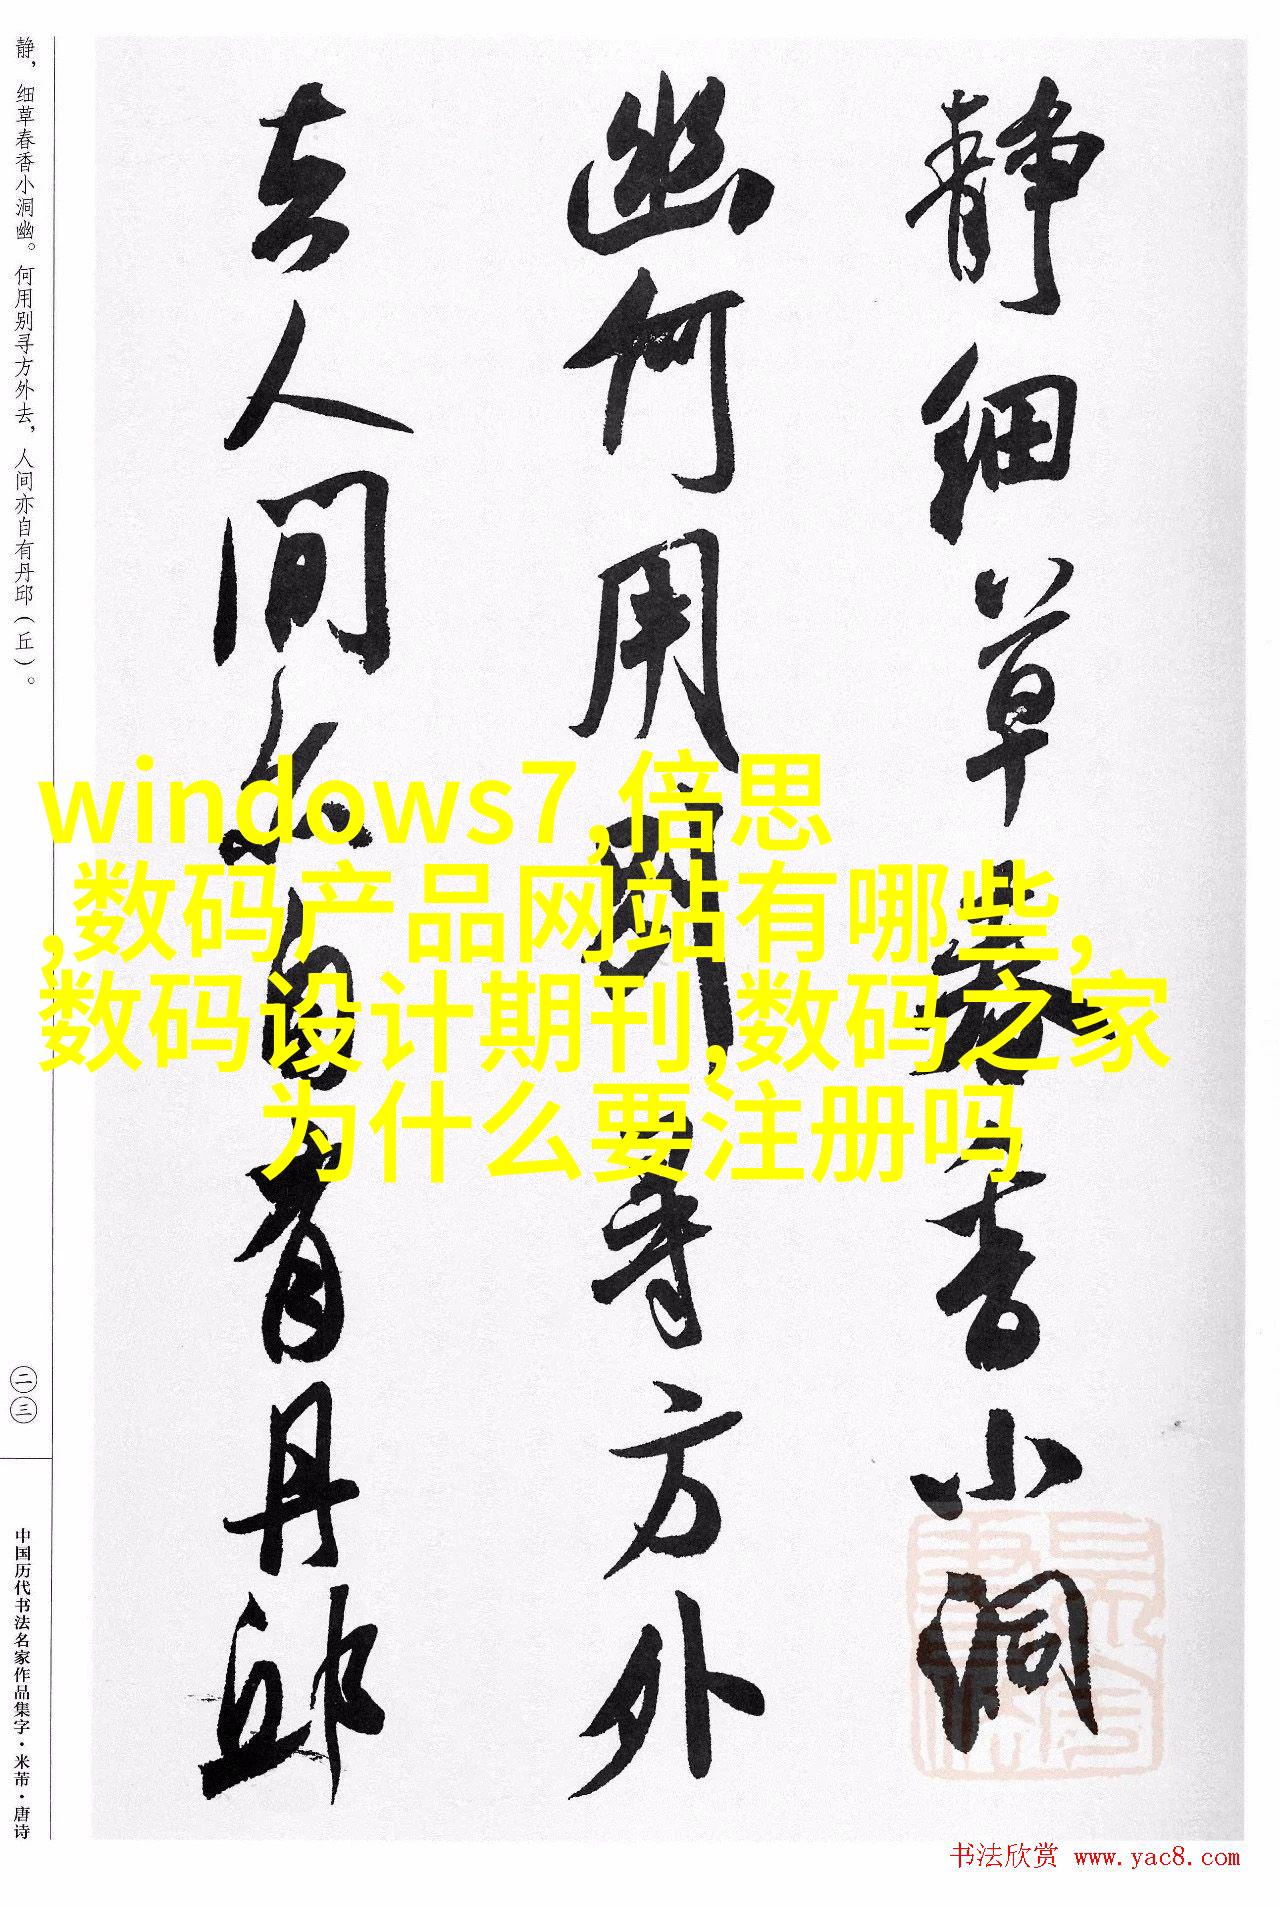 静细草春香小洞
幽何用别寻方外
去人间亦自有丹邱
静，细草春香小洞幽。何用别寻方外去，人间亦自有丹邱（丘）。
二三
中国历代书法名家作品集字·米芾·唐诗
windows7,倍思
,数码产品网站有哪些,
数码设计期刊,数码之家
为什么要注册吗
书法欣赏 www.yac8.com